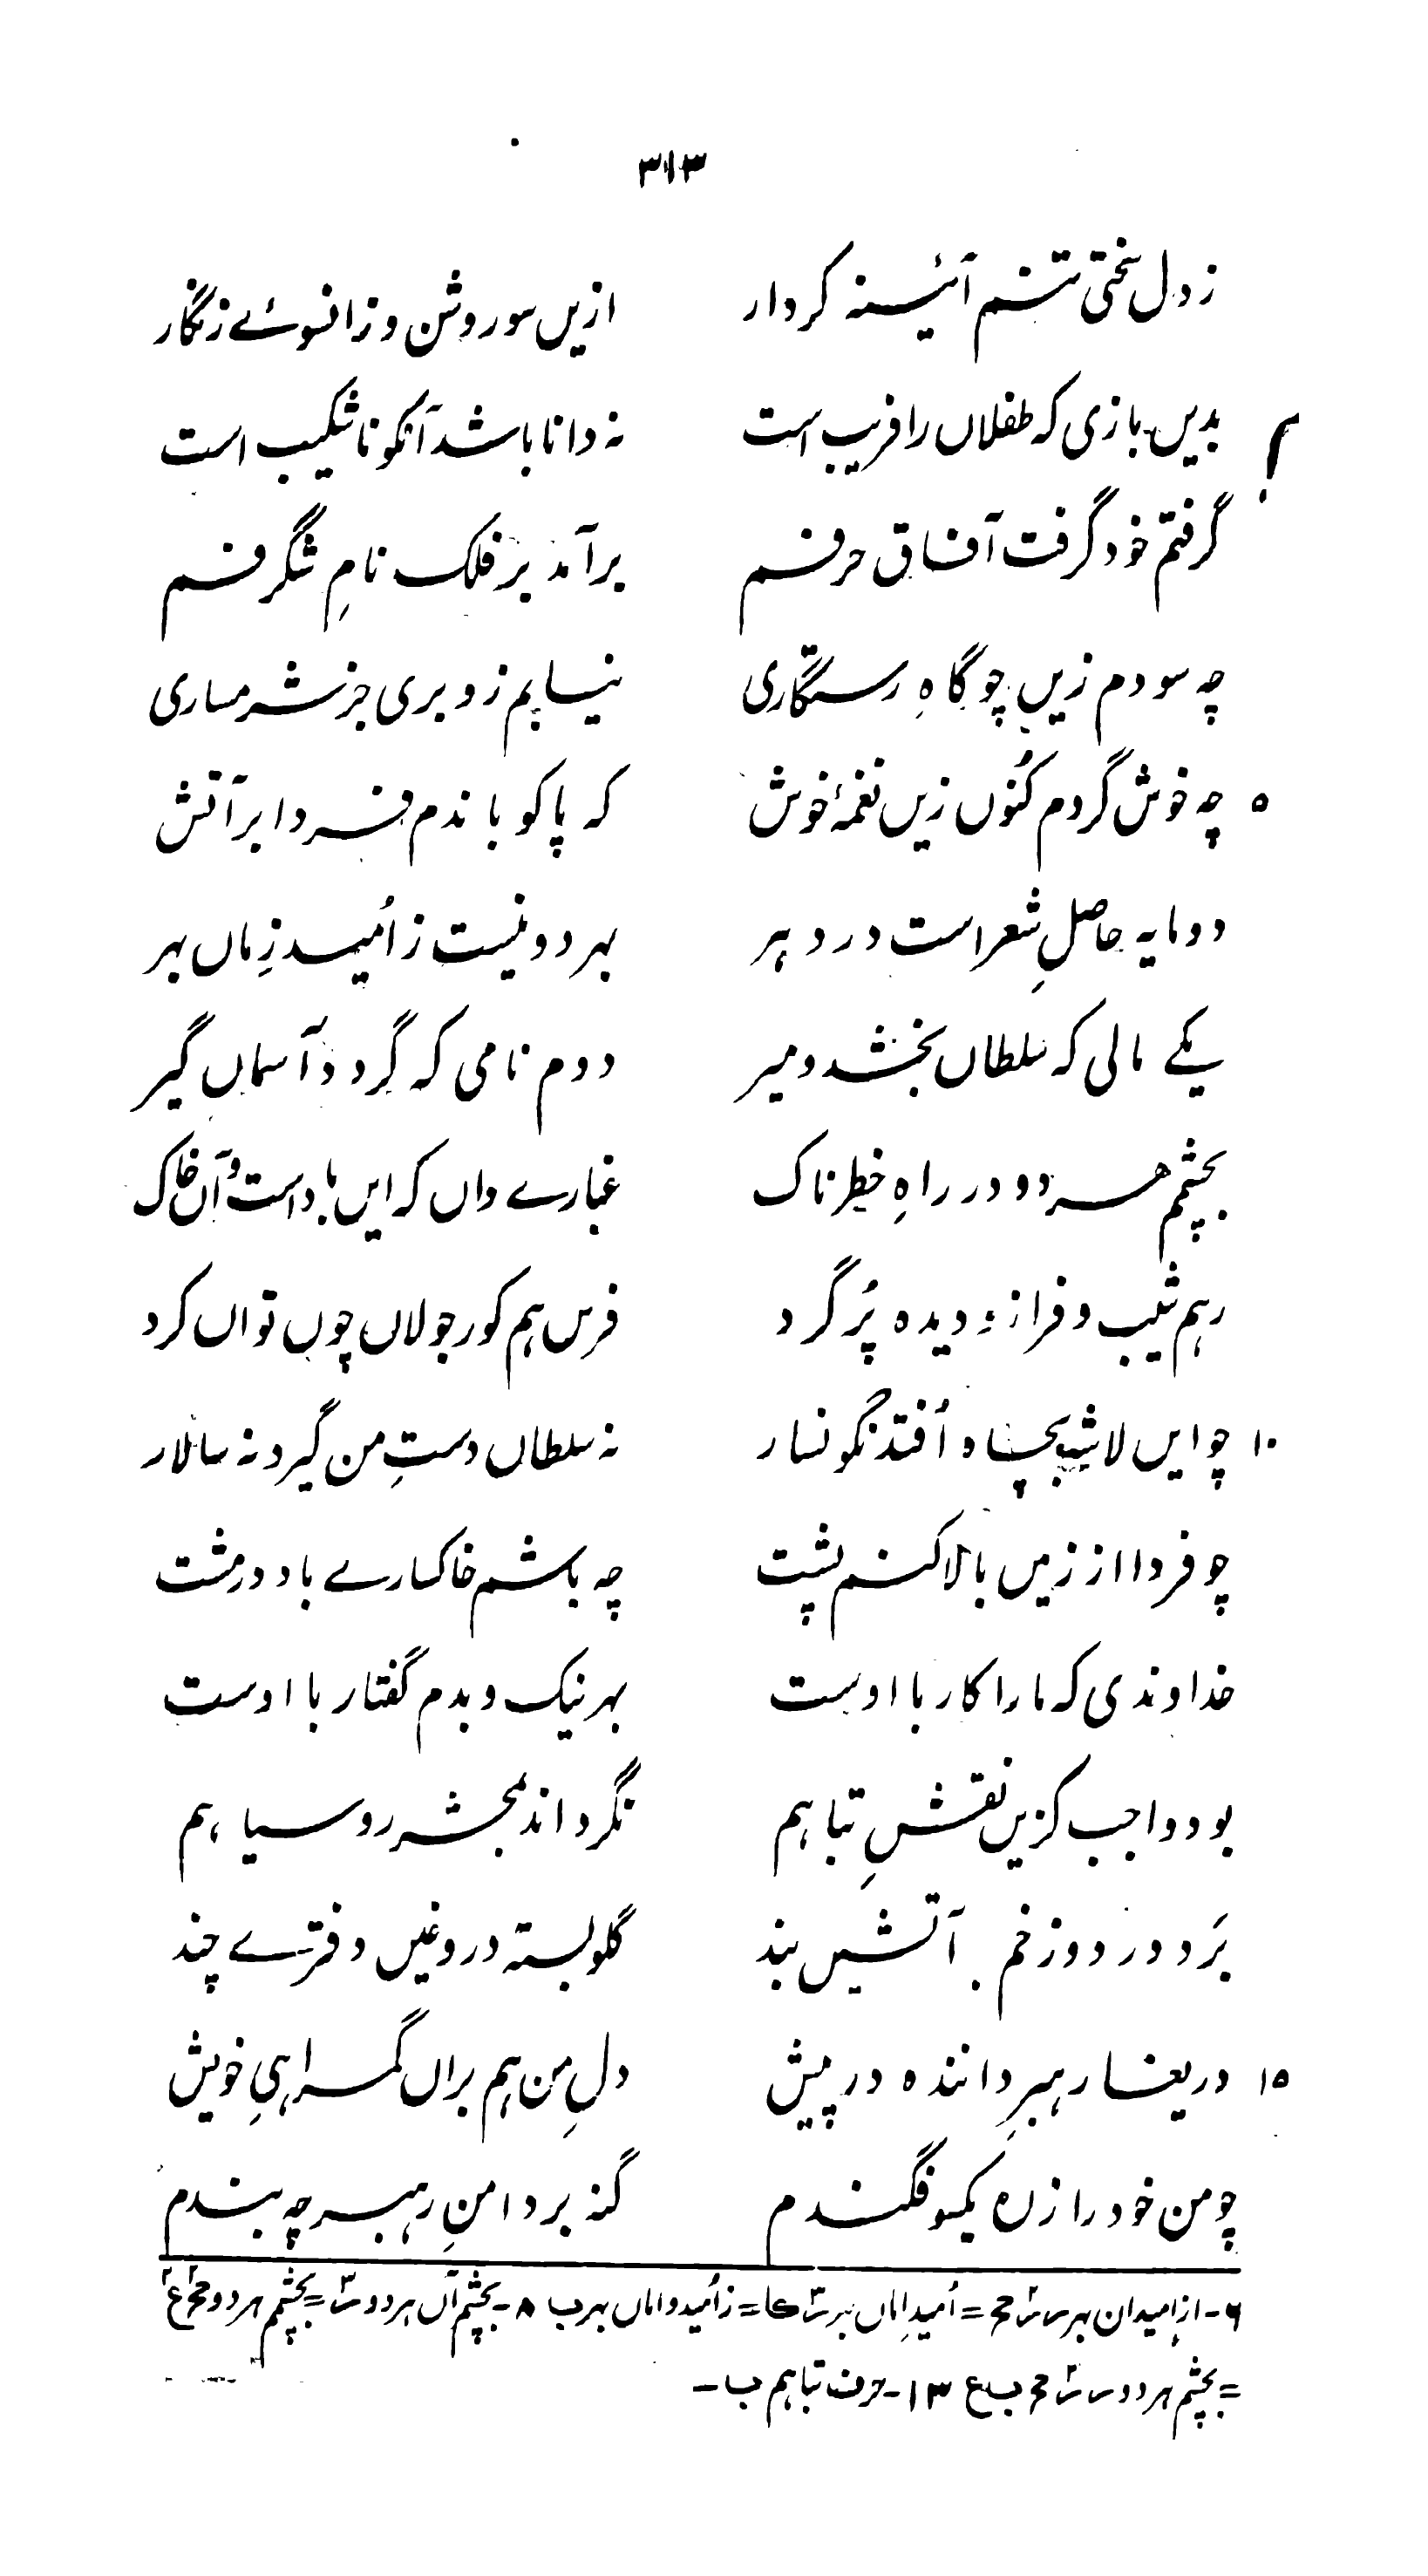 ۳۱۳
ز دل سختی تنم آئینہ کردار ازیں سو روشن و زانسوئے زنگار
بدیں بازی کہ طفلاں را فریب است نہ دانا باشد آنکو ناشکیب است
گرفتم خود گرفت آفاق حرفم برآمد بر فلک نامِ شگرفم
چہ سودم زیں چو گاہِ رستگاری نیابم زو بری جز شرمساری
۵ چہ خوش گردم کنُوں زیں نغمۂ خوش کہ پاکوباندم فردا بر آتش
دو مایہ حاصلِ شعر است در دہر بہر دو نیست ز اُمیدِ زماں بہر
یکے مالی کہ سلطاں بخشد و میر دوم نامی کہ گردد آسماں گیر
بچشم ہر دو در راہِ خطرناک غبارے داں کہ ایں باد است و آں خاک
رہم شیب و فراز و دیدہ پُر گرد فرس ہم کور جولاں چوں تواں کرد
۱۰ چو ایں لاشہ بچاہ اُفتد نگونسار نہ سلطاں دستِ من گیرد نہ سالار
چو فردا از زمیں بالا کنم پشت چہ باشم خاکسارے باد در مشت
خداوندی کہ ما را کار با اوست بہر نیک و بدم گفتار با اوست
بود واجب کزیں نقشِ تباہم نگرداند بمحشر رو سیاہم
بَرد در دوزخم آتشیں بند گلو بستہ دروغیں دفترے چند
۱۵ دریغا رہبرِ دانندہ در پیش دلِ من ہم براں گمراہیِ خویش
چو من خود را زرہ یکسو فگندم گنہ بر دامنِ رہبر چہ بندم
۶- از امیدان بہر = اُمیدِ اماں بہر = ز اُمید و اماں بہر ب ۸- بچشم آں ہر دو = بچشم ہر دو
= بچشم ہر دو ۱۳- حرف تباہم ب-